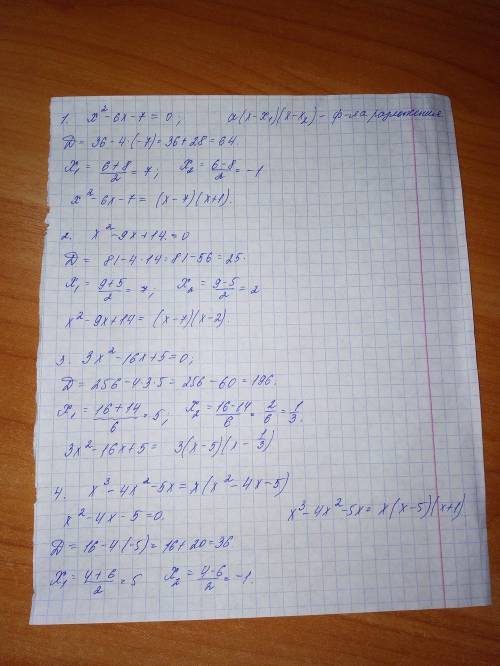 1. x²-6x-7=0; a(x-x₁)(x-x₂) - ф-ла разложения
D= 36-4·(-7)=36+28=64
x₁= (6+8)/2=7; x₂=(6-8)/2=-1
x²-6x-7= (x-7)(x+1).
2. x²-9x+14=0
D= 81-4·14=81-56=25.
x₁= (9+5)/2=7; x₂=(9-5)/2=2
x²-9x+14= (x-7)(x-2).
3. 3x²-16x+5=0;
D=256-4·3·5=256-60=196.
x₁=(16+14)/6=5; x₂=(16-14)/6=2/6=1/3.
3x²-16x+5= 3(x-5)(x-1/3)
4. x³-4x²-5x=x(x²-4x-5)
x²-4x-5=0. x³-4x²-5x= x(x-5)(x+1)
D=16-4(-5)=16+20=36
x₁=(4+6)/2=5 x₂=(4-6)/2=-1.